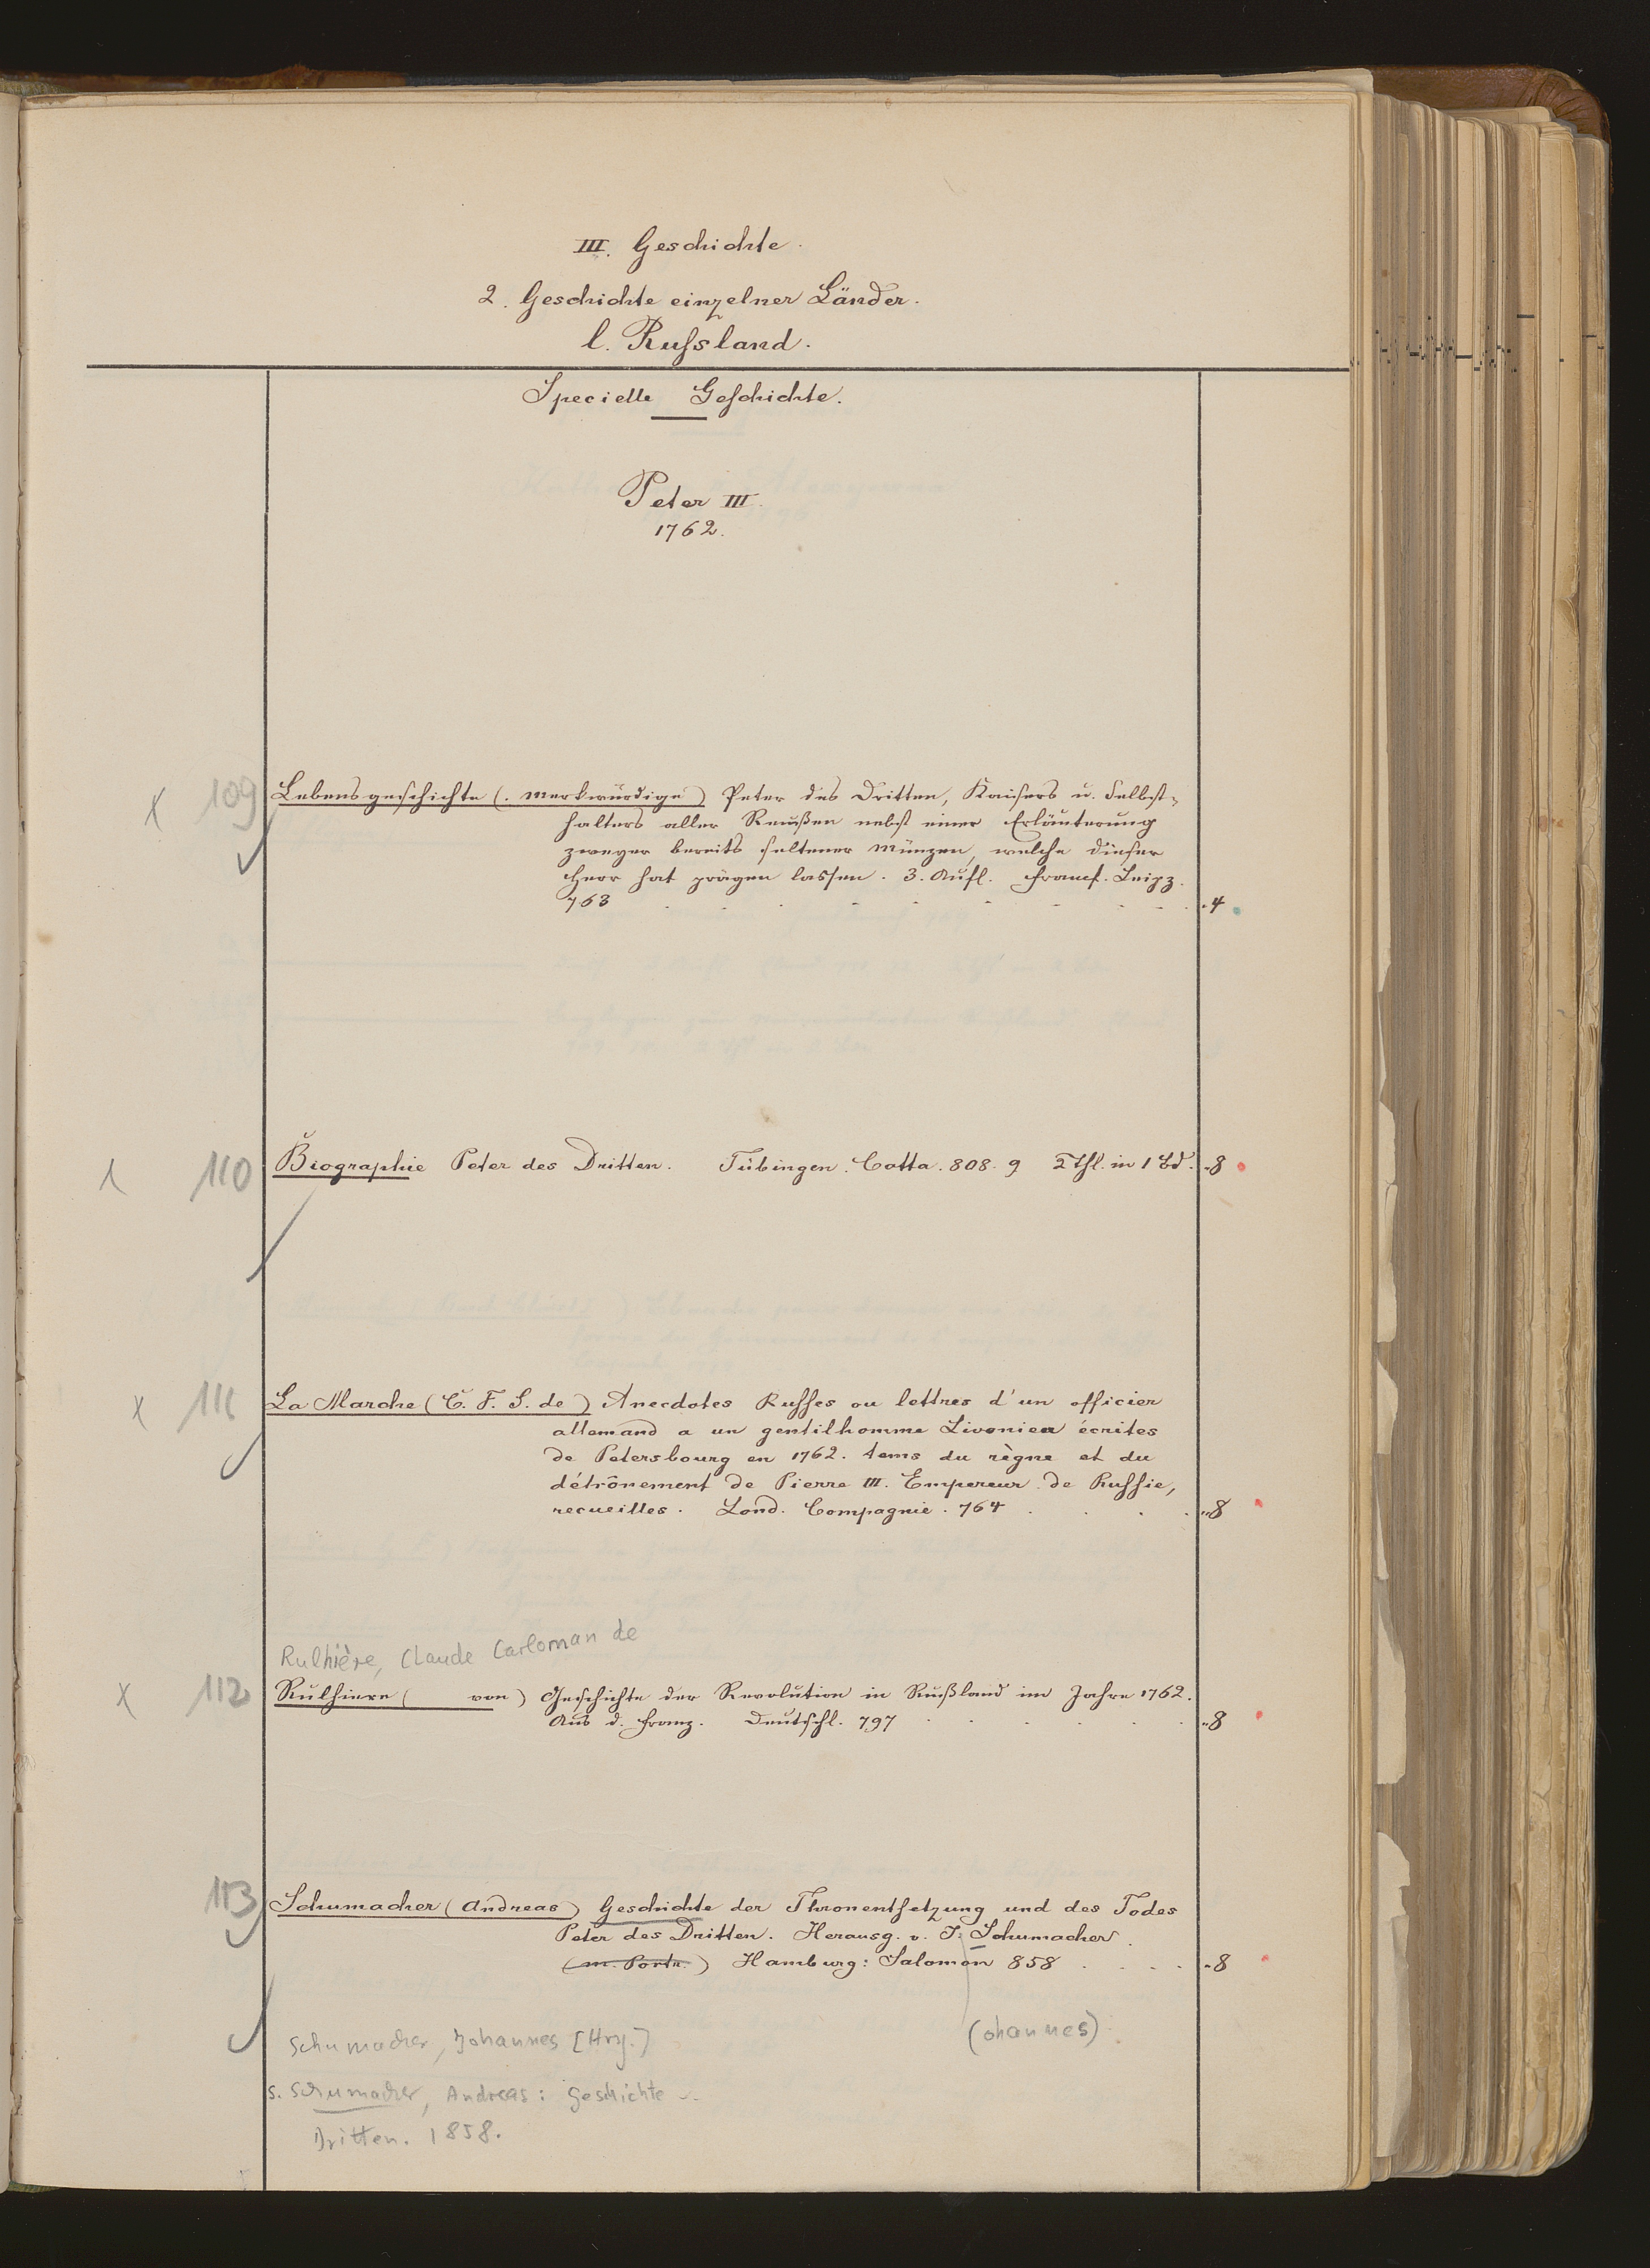 III. Geschichte.
2. Geschichte einzelner Länder.
l. Russland.
Specielle Geschichte.
Peter III.
1762.
x 109 Lebensgeschichte (. merkwürdige) Peter des Dritten, Kaisers u. Selbst-
halters aller Reußen nebst einer Erläuterung
zweyer bereits seltener Münzen, welche dieser
Herr hat prägen lassen. 3. Aufl. Franf. Leipz.
763 . 4
110 Biographie Peter des Dritten. Tübingen. Cotta. 808. 9 2 Thl. in 1 Bd. 8
x 111 La Marche (C. F. S. de) Anecdotes Russes ou lettres d'un officier
allemand a un gentilhomme Livonien écrites
de Petersbourg en 1762. tems du règne et du
détrônement de Pierre III. Empereur de Russie,
recueilles. Lond. Compagnie. 764 . . . 8
Rulhière, Claude Carloman de
x 112 Rulhiere ( von) Geschichte der Revolution in Rußland im Jahre 1762.
Aus d. Franz. Deutschl. 797 . . . 8
113 Schumacher (Andreas) Geschichte der Thronentsetzung und des Todes
Peter des Dritten. Herausg. v. J. Schumacher.
(m. Portr.) Hamburg: Salomon 858 . . . 8
(ohannes)
Schumacher, Johannes [Hrg.]
s. Schumacher, Andreas: Geschichte ..
Dritten. 1858.